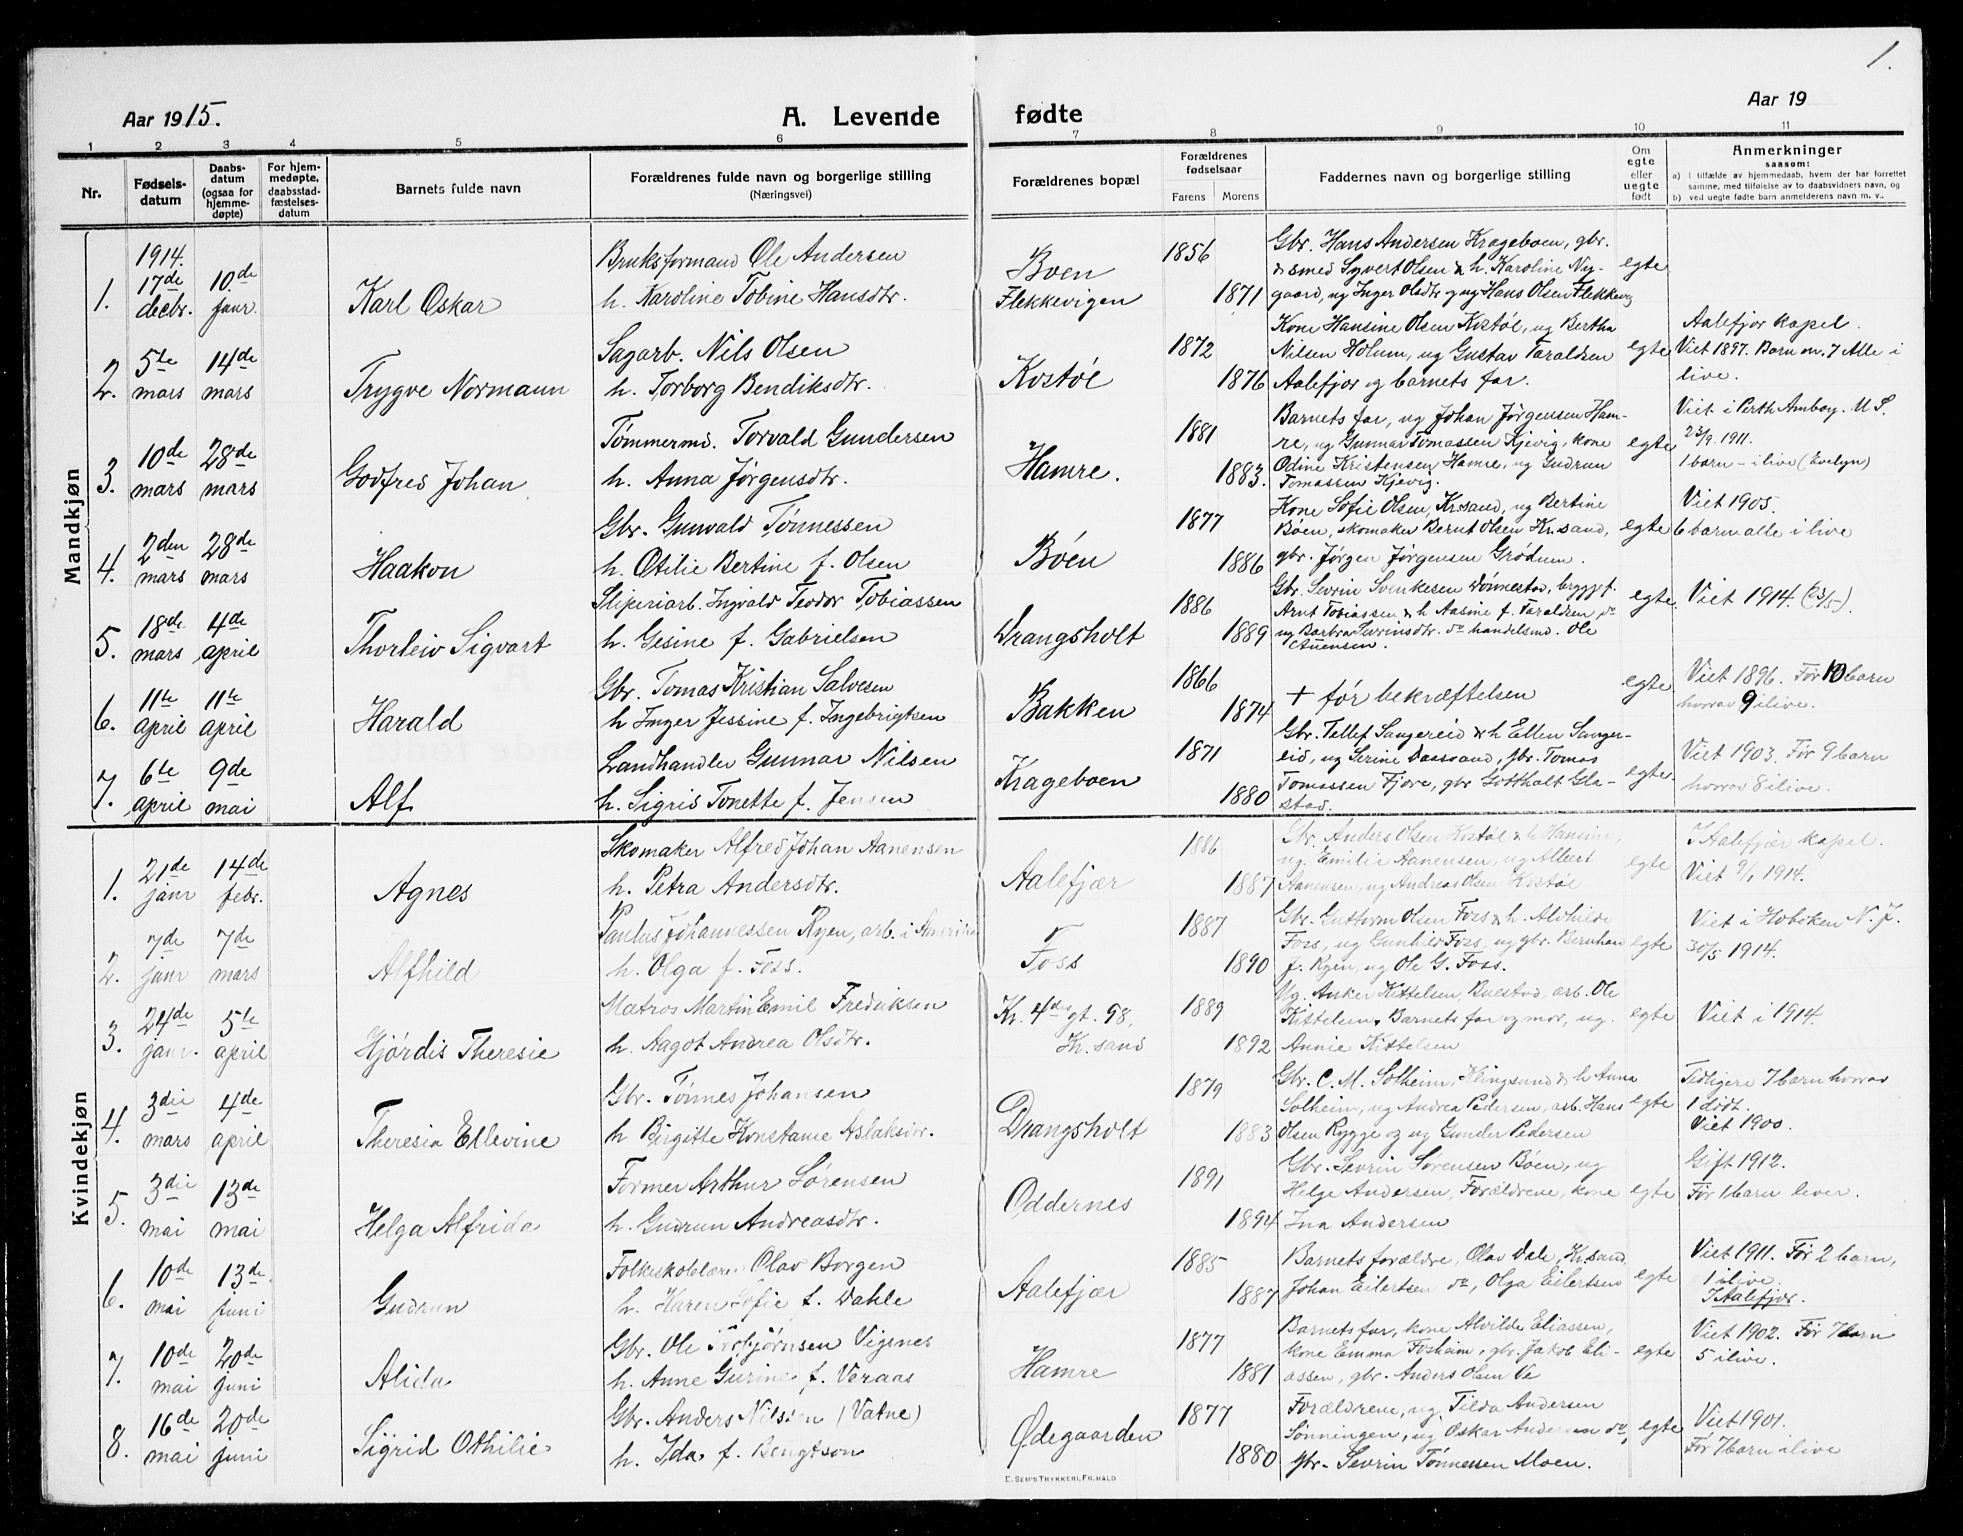 1.
Aar 1915.
A. Levende fødte
Aar 19
1 2 3 4 5 6 7 8 9 10 11
Nr.
Fødsels-
datum
Daabs-
datum
(ogsaa for
hjemme-
døpte)
For hjem-
medøpte,
daabsstad-
fæstelses-
datum
Barnets fulde navn
Forældrenes fulde navn og borgerlige stilling
(Næringsvei)
Forældrenes bopæl
Forældrenes
fødselsaar
Farens Morens
Faddernes navn og borgerlige stilling
Om
egte
eller
uegte
født
Anmerkninger
saasom:
a) I tilfælde av hjemmedaab, hvem der har forrettet
samme, med tilføielse av to daabsvidners navn, og
b) ved uegte fødte barn anmelderens navn m. v.,
Mandkjøn
1914.
1.
17de
decbr.
10de
janr.
Karl Oskar
Bruksformand Ole Andersen
h. Karoline Tobine Hansdtr.
Boen
Flekkevigen
1856
1871
Gbr. Hans Andersen Krageboen, gbr.
& smed Syvert Olsen & h. Karoline Ny-
gaard, ug Inger Olsdtr og ug Hans Olsen Flekkevig
egte
2.
5te
mars
14de
mars
Trygve Normann
Sagarb. Nils Olsen
h. Torborg Bendiksdtr.
Kostøl
1872
1876
Kone Hansine Olsen Kostøl, ug Bertha
Nilsen Holum, ug Gustav Taraldsen
Aalefjær og barnets far.
egte
Aalefjær kapel.
Viet 1897. Barn nr. 7 Alle i
live.
3.
10de
mars
28de
mars
Godfred Johan
Tømmermd. Torvald Gundersen
h. Anna Jørgensdtr.
Hamre.
1881
1883.
Barnets far, ug Johan Jørgensen Ham-
re, ug Gunnar Tomassen Kjevig, kone
Odine Kristensen Hamre, ug Gudrun
Tomassen Kjevig.
egte
Viet i Perth Amboy. U.S.
23/9 1911.
1 barn - i live (Evelyn)
4.
2den
mars
28de
mars
Haakon
Gbr. Gunvald Tønnessen
h. Otilie Bertine f. Olsen
Bøen
1877
1886
Kone Sofie Olsen, Kr.sand, ug Bertine
Bøen, skomaker Bernt Olsen Kr.sand,
gbr. Jørgen Jørgensen Grødum.
egte
Viet 1905.
6 barn alle i live
5.
18de
mars
4de
april
Thorleiv Sigvart
Sliperiarb. Ingvald Teodor Tobiassen
h. Gesine f. Gabrielsen
Drangsholt
1886
1889
Gbr. Sevrin Svenkesen Dønnestad, bryggef.
Arnt Tobiassen & h Aasine f. Taraldsen, do
ug Barbra Sevrinsdtr. do handelsmd. Ole
egte
Viet 1914. (23/5).
6.
11te
april
11te
april
Harald
Gbr. Tomas Kristian Salvesen
h Inger Jessine f. Ingebrigtsen
Bakken
1866
1874
+ før bekræftelsen
egte
Viet 1896. Før 10 barn
hvorav 9 i live.
7.
6te
april
9de
mai
Alf
Landhandler Gunnar Nilsen
h. Sigrid Tonette f. Jensen
Krageboen
1871
1880
Gbr. Tellef Sangereid & h Ellen Sanger-
eid, ug Serine Aasvand, gbr. Tomas
Tomassen Fjære, gbr Gotthalt Gla-
stad.
egte
Viet 1903. Før 9 barn
hvorav 8 i live.
Kvindekjøn
1.
21de
janr
14de
febr.
Agnes
Skomaker Alfred Johan Aanensen
h. Petra Andersdtr.
Aalefjær
1886
1887
Gbr. Anders Olsen Kostøl & h Hansine,
ug. Emilie Aanensen, ug Albert
Aanensen, ug Andreas Olsen Kostøl
egte
I Aalefjær kapel.
Viet 9/1 1914.
2.
7de
janr
7de
mars
Alfhild
Paulus Johannessen Ryen, arb. i Amerika
h. Olga f. Foss.
Foss
1887
1890
Gbr. Guttorm Olsen Foss & h. Alvhilde
Foss, ug Gunhild Foss, ug gbr. Bernhan
f. Ryen, ug Ole G. Foss.
egte
Viet i Hoboken N. J.
30/5 1914.
3.
24de
janr.
5te
april
Hjørdis Theresie
Matros Martin Emil Fredriksen
h. Aagot Andrea Olsdtr.
Kr. 4des gt. 98,
Kr.sand
1889
1892
Ug. Anker Kittelsen, Buestad, arb. Ole
Kittelsen, Barnets far og mor, ug.
Annie Kittelsen
egte
Viet i 1914.
4.
3die
mars
4de
april
Theresia Ellevine
Gbr. Tønnes Johansen
h Birgitte Konstanse Aslaksdtr.
Drangsholt
1879
1883
Gbr. C. M. Solheim, Klingsund & h Anna
Solheim, ug Andrea Pedersen, arb. Hans
Olsen Rygge og ug Gunder Pedersen
egte
Tidligere 7 barn hvorav
1 dødt.
Viet 1900.
5.
3die
mai
13de
mai
Helga Alfrida
Former Arthur Sørensen
h. Gudrun Andreasdtr.
Oddernes
1891
1894
Gbr. Sevrin Sørensen Bøen, ug
Helge Andersen, Forældrene, kone
Ina Andersen
egte
Gift 1912.
Før 1 barn lever.
6.
10de
mai
13de
juni
Gudrun
Folkeskolelær. Olav Borgen
h. Karen Sofie f. Dahle
Aalefjær
1885
1887
Barnets forældre, Olav Dale, Kr.sand,
Johan Eilertsen do, Olga Eilertsen
egte
Viet 1911. Før 2 barn,
1 i live.
I Aalefjær.
7.
10de
mai
20de
juni
Alida
Gbr. Ole Torbjørnsen Vigsnes
h. Anne Gurine f. Veraas
Hamre
1877
1881
Barnets far, kone Alvilde Eliassen,
kone Emma Fosheim, gbr. Jakob Eli-
assen, gbr. Anders Olsen Ve
egte
Viet 1902. Før 7 barn
5 i live.
8.
16de
mai
20de
juni
Sigrid Othilie
Gbr. Anders Nilssen (Vatne)
h. Ida f. Bengtson
Ødegaarden
1877
1880
Forældrene, ug Tilda Andersen
Sønningen, ug Oskar Andersen do,
gbr. Sevrin Tønnessen Moen.
egte
Viet 1901.
Før 7 barn i live
E. SEM'S TRYKKERI, FR.HALD